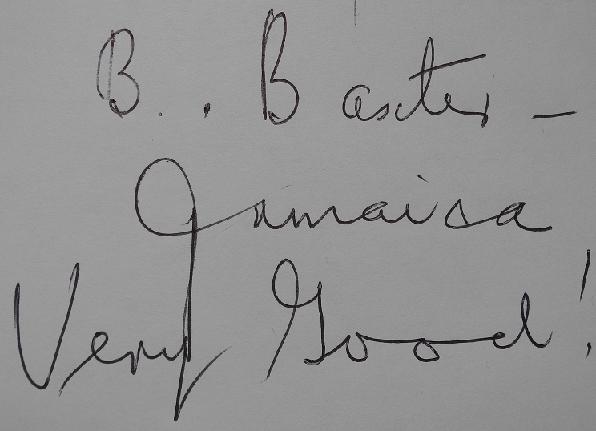 B. . Baxter –
Jamaica
Very Good!